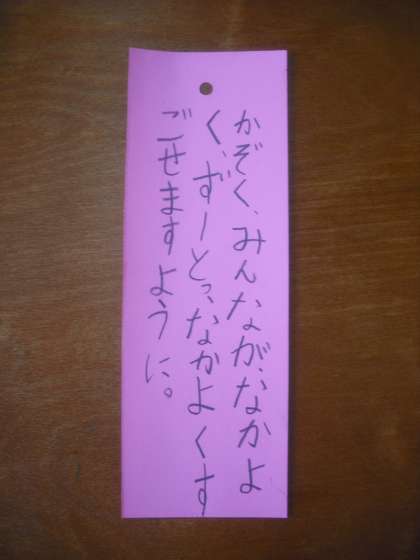 かぞく、みんなが、なかよ
く、ずーとっ、なかよくす
ごせますように。